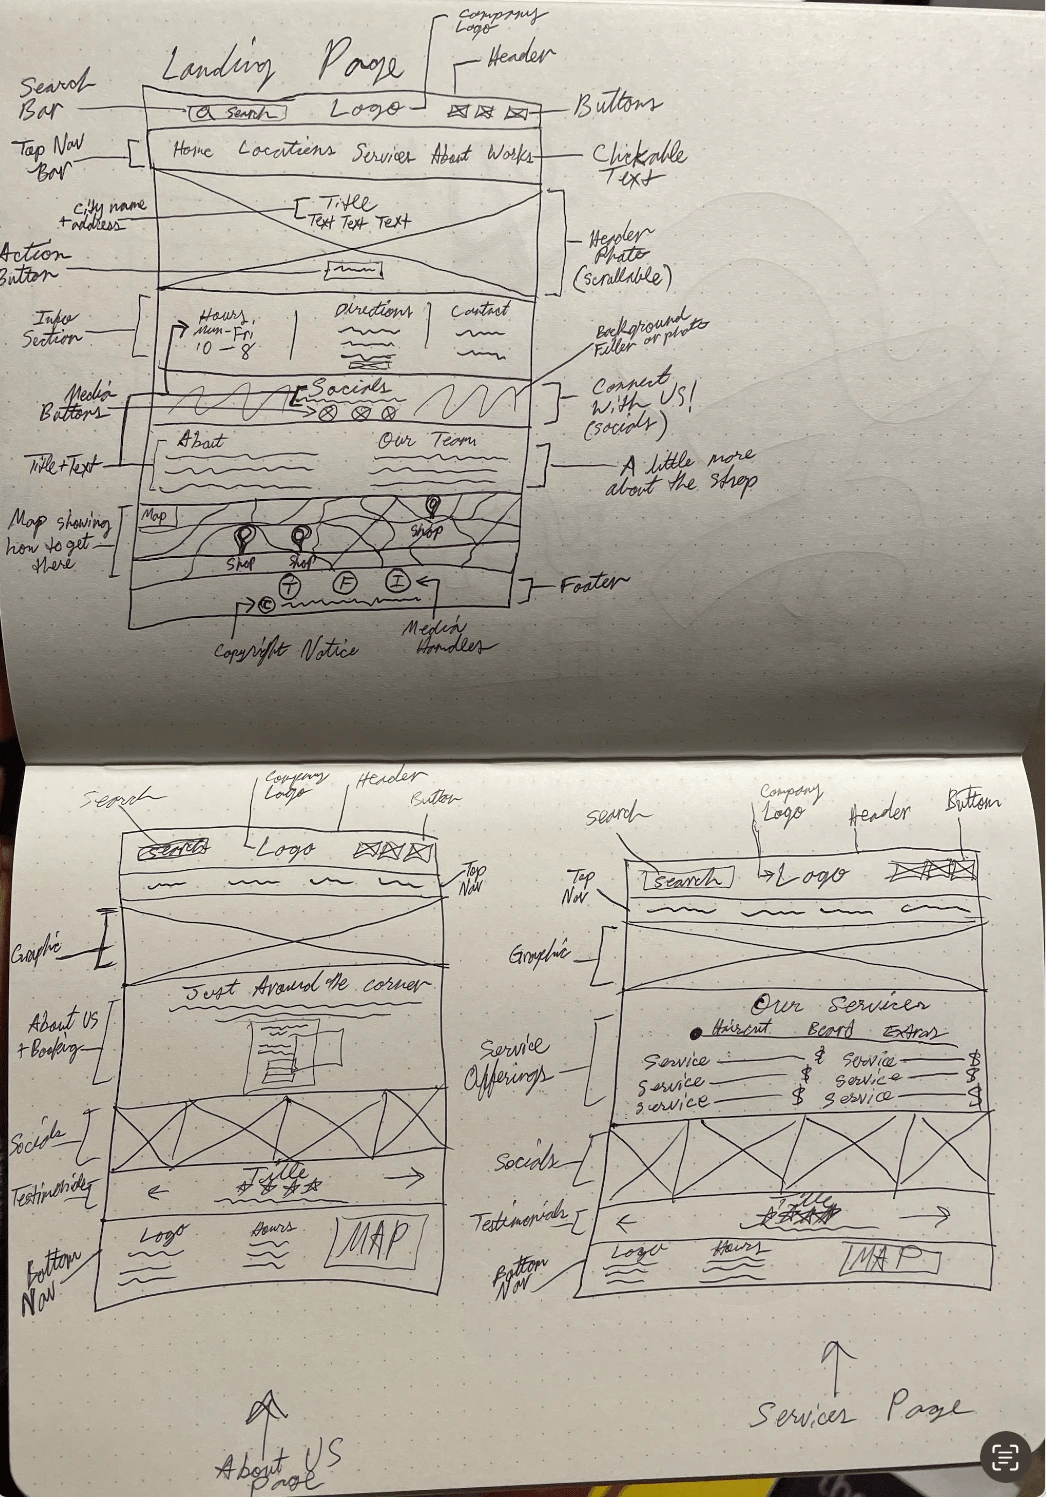 Landing Page
Company
Logo
Header
Search
Bar
Search
Logo
Buttons
Top Nav
Bar
Home Locations Services About Works
Clickable
Text
City name
+ address
Title
Text Text Text
Action
Button
Header
Photo
(scrollable)
Info
Section
Hours
Mon-Fri
10 - 8
Directions
Contact
Background
Filler or photo
Media
Buttons
Socials
Connect
With US!
(socials)
Title+Text
About
Our Team
A little more
about the shop
Map showing
how to get
there
Map
Shop
Shop
Shop
T F I
Footer
©
Copyright Notice
Media
Handles
Search
Company
Logo
Header
Button
Search
Logo
Top
Nav
Graphic
Just Around the corner
About US
+ Booking
Socials
Testimonials
Title
Bottom
Nav
Logo
Hours
MAP
About US
Page
search
Company
Logo
Header
Button
search
Logo
Top
Nav
Graphic
Our Services
Haircut Beard Extras
Service
Offerings
Service $ Service $
Service $ Service $
Service $ Service $
Socials
Testimonials
Title
Bottom
Nav
Logo
Hours
MAP
Services Page